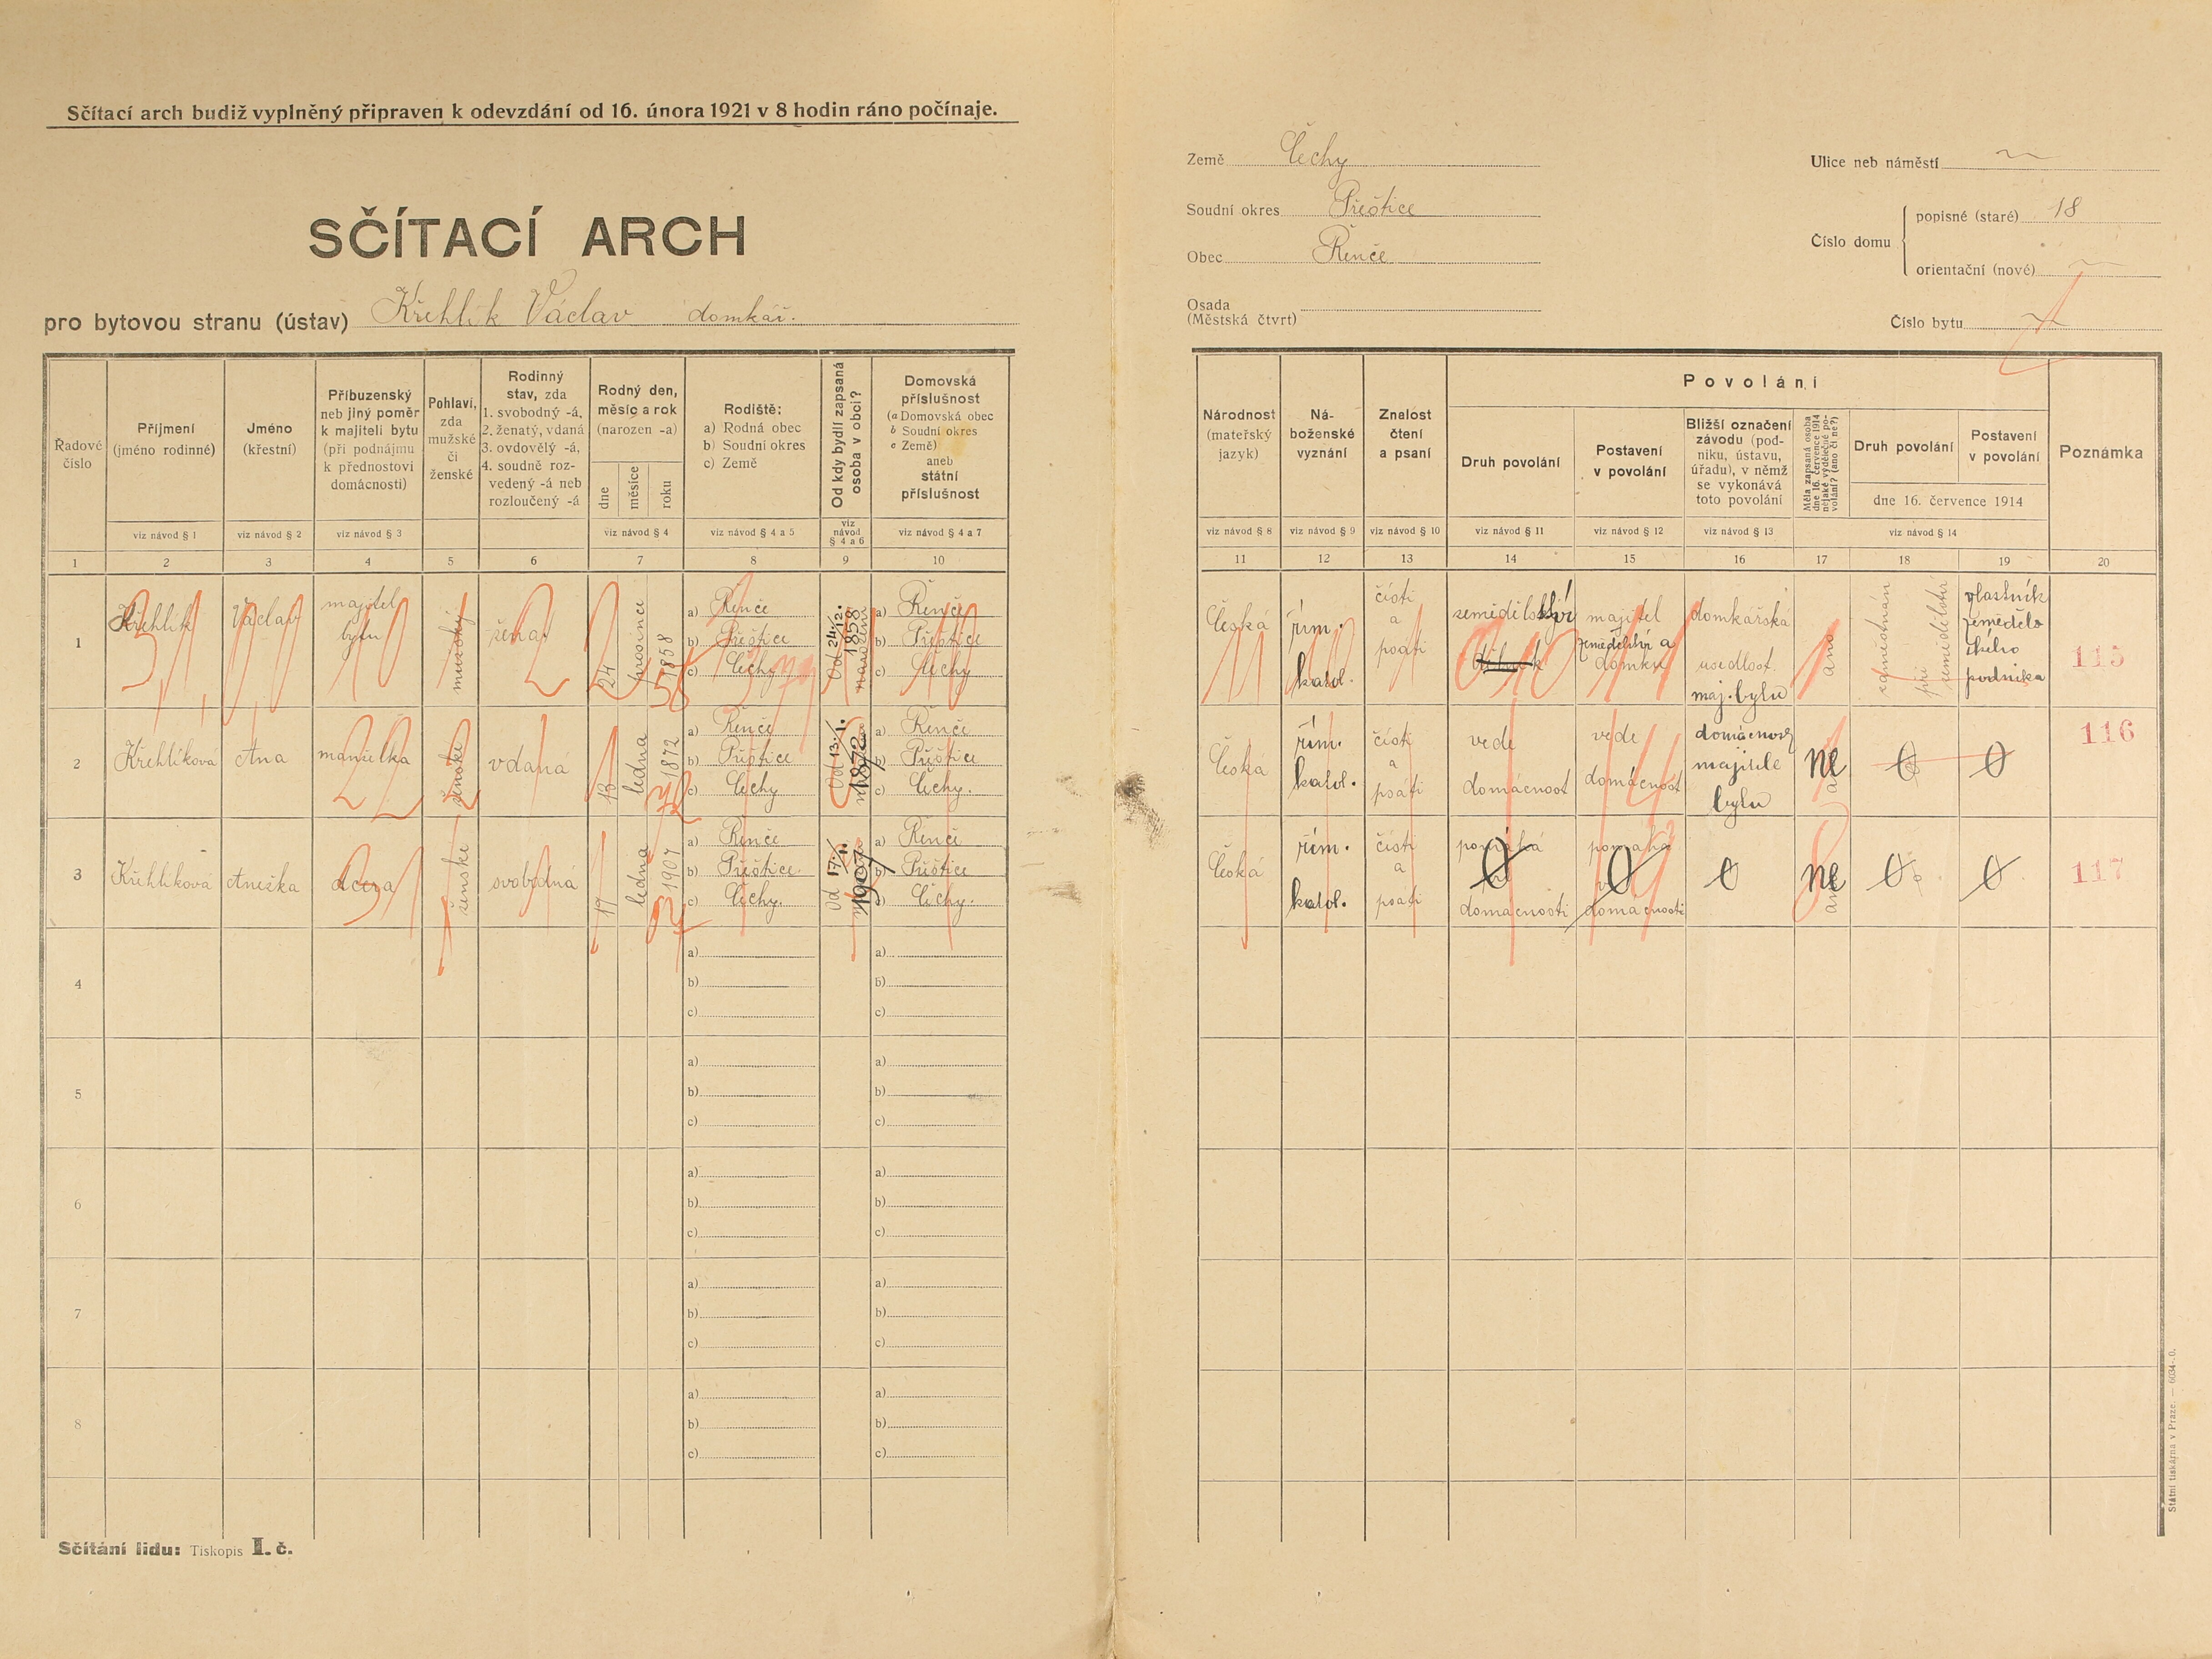 Sčítací arch budiž vyplněný připraven k odevzdání od 16. února 1921 v 8 hodin ráno počínaje.
SČÍTACÍ ARCH
pro bytovou stranu (ústav) Křehlík Václav domkář.
Země Čechy
Soudní okres Přeštice
Obec Řenče
Osada
(Městská čtvrt)
Ulice neb náměstí
Číslo domu
popisné (staré) 18
orientační (nové)
Číslo bytu
Řadové
číslo
Příjmení
(jméno rodinné)
Jméno
(křestní)
Příbuzenský
neb jiný poměr
k majiteli bytu
(při podnájmu
k přednostovi
domácnosti)
Pohlaví,
zda
mužské
či
ženské
Rodinný
stav, zda
1. svobodný -á,
2. ženatý, vdaná
3. ovdovělý -á,
4. soudně roz-
vedený -á neb
rozloučený -á
Rodný den,
měsíc a rok
(narozen -a)
dne
měsíce
roku
Rodiště:
a) Rodná obec
b) Soudní okres
c) Země
Od kdy bydlí zapsaná
osoba v obci?
Domovská
příslušnost
(a Domovská obec
b Soudní okres
c Země)
aneb
státní
příslušnost
viz návod § 1
viz návod § 2
viz návod § 3
viz návod § 4
viz návod § 4 a 5
viz
návod
§ 4 a 6
viz návod § 4 a 7
1 2 3 4 5 6 7 8 9 10
Národnost
(mateřský
jazyk)
Ná-
boženské
vyznání
Znalost
čtení
a psaní
Povolání
Druh povolání
Postavení
v povolání
Bližší označení
závodu (pod-
niku, ústavu,
úřadu), v němž
se vykonává
toto povolání
Měla zapsaná osoba
dne 16. července 1914
nějaké výdělečné po-
volání? (ano či ne?)
Druh povolání
Postavení
v povolání
dne 16. července 1914
Poznámka
viz návod § 8
viz návod § 9
viz návod § 10
viz návod § 11
viz návod § 12
viz návod § 13
viz návod § 14
11 12 13 14 15 16 17 18 19 20
1
Křehlík
Václav
majitel
bytu
mužský
ženat
24
prosince
1858
a) Řenče
b) Přeštice
c) Čechy
Od 24./12.
1858
narození
a) Řenče
b) Přeštice
c) Čechy
Česká
řím.
katol.
čísti
a
psáti
zemědělství
majitel
zemědělství a
domku
domkářská
usedlost.
maj. bytu
ano
zaměstnán
při
zemědělství
vlastník
zeměděls
kého
podnika
115
2
Křehlíková
Ana
manželka
ženské
vdana
13
ledna
1872
a) Řenče
b) Přeštice
c) Čechy
Od 13./1.
1872
a) Řenče
b) Přeštice
c) Čechy.
Česka
řím.
katol.
čísti
a
psáti
vede
domácnost
vede
domácnost
domácnost
majitele
bytu
ne
0
0
116
3
Křehlíková
Anežka
dcera
ženské
svobodná
17
ledna
1907
a) Řenče
b) Přeštice
c) Čechy.
od 17./1.
1907
a) Řenče
b) Přeštice
c) Čechy.
Česká
řím.
katol.
čísti
a
psáti
pomáhá
domácnosti
pomáhá
v
domácnosti
0
ne
0
0
117
4
a)
b)
c)
a)
b)
c)
5
a)
b)
c)
a)
b)
c)
6
a)
b)
c)
a)
b)
c)
7
a)
b)
c)
a)
b)
c)
8
a)
b)
c)
a)
b)
c)
Sčítání lidu: Tiskopis I. č.
Státní tiskárna v Praze. — 6034-0.